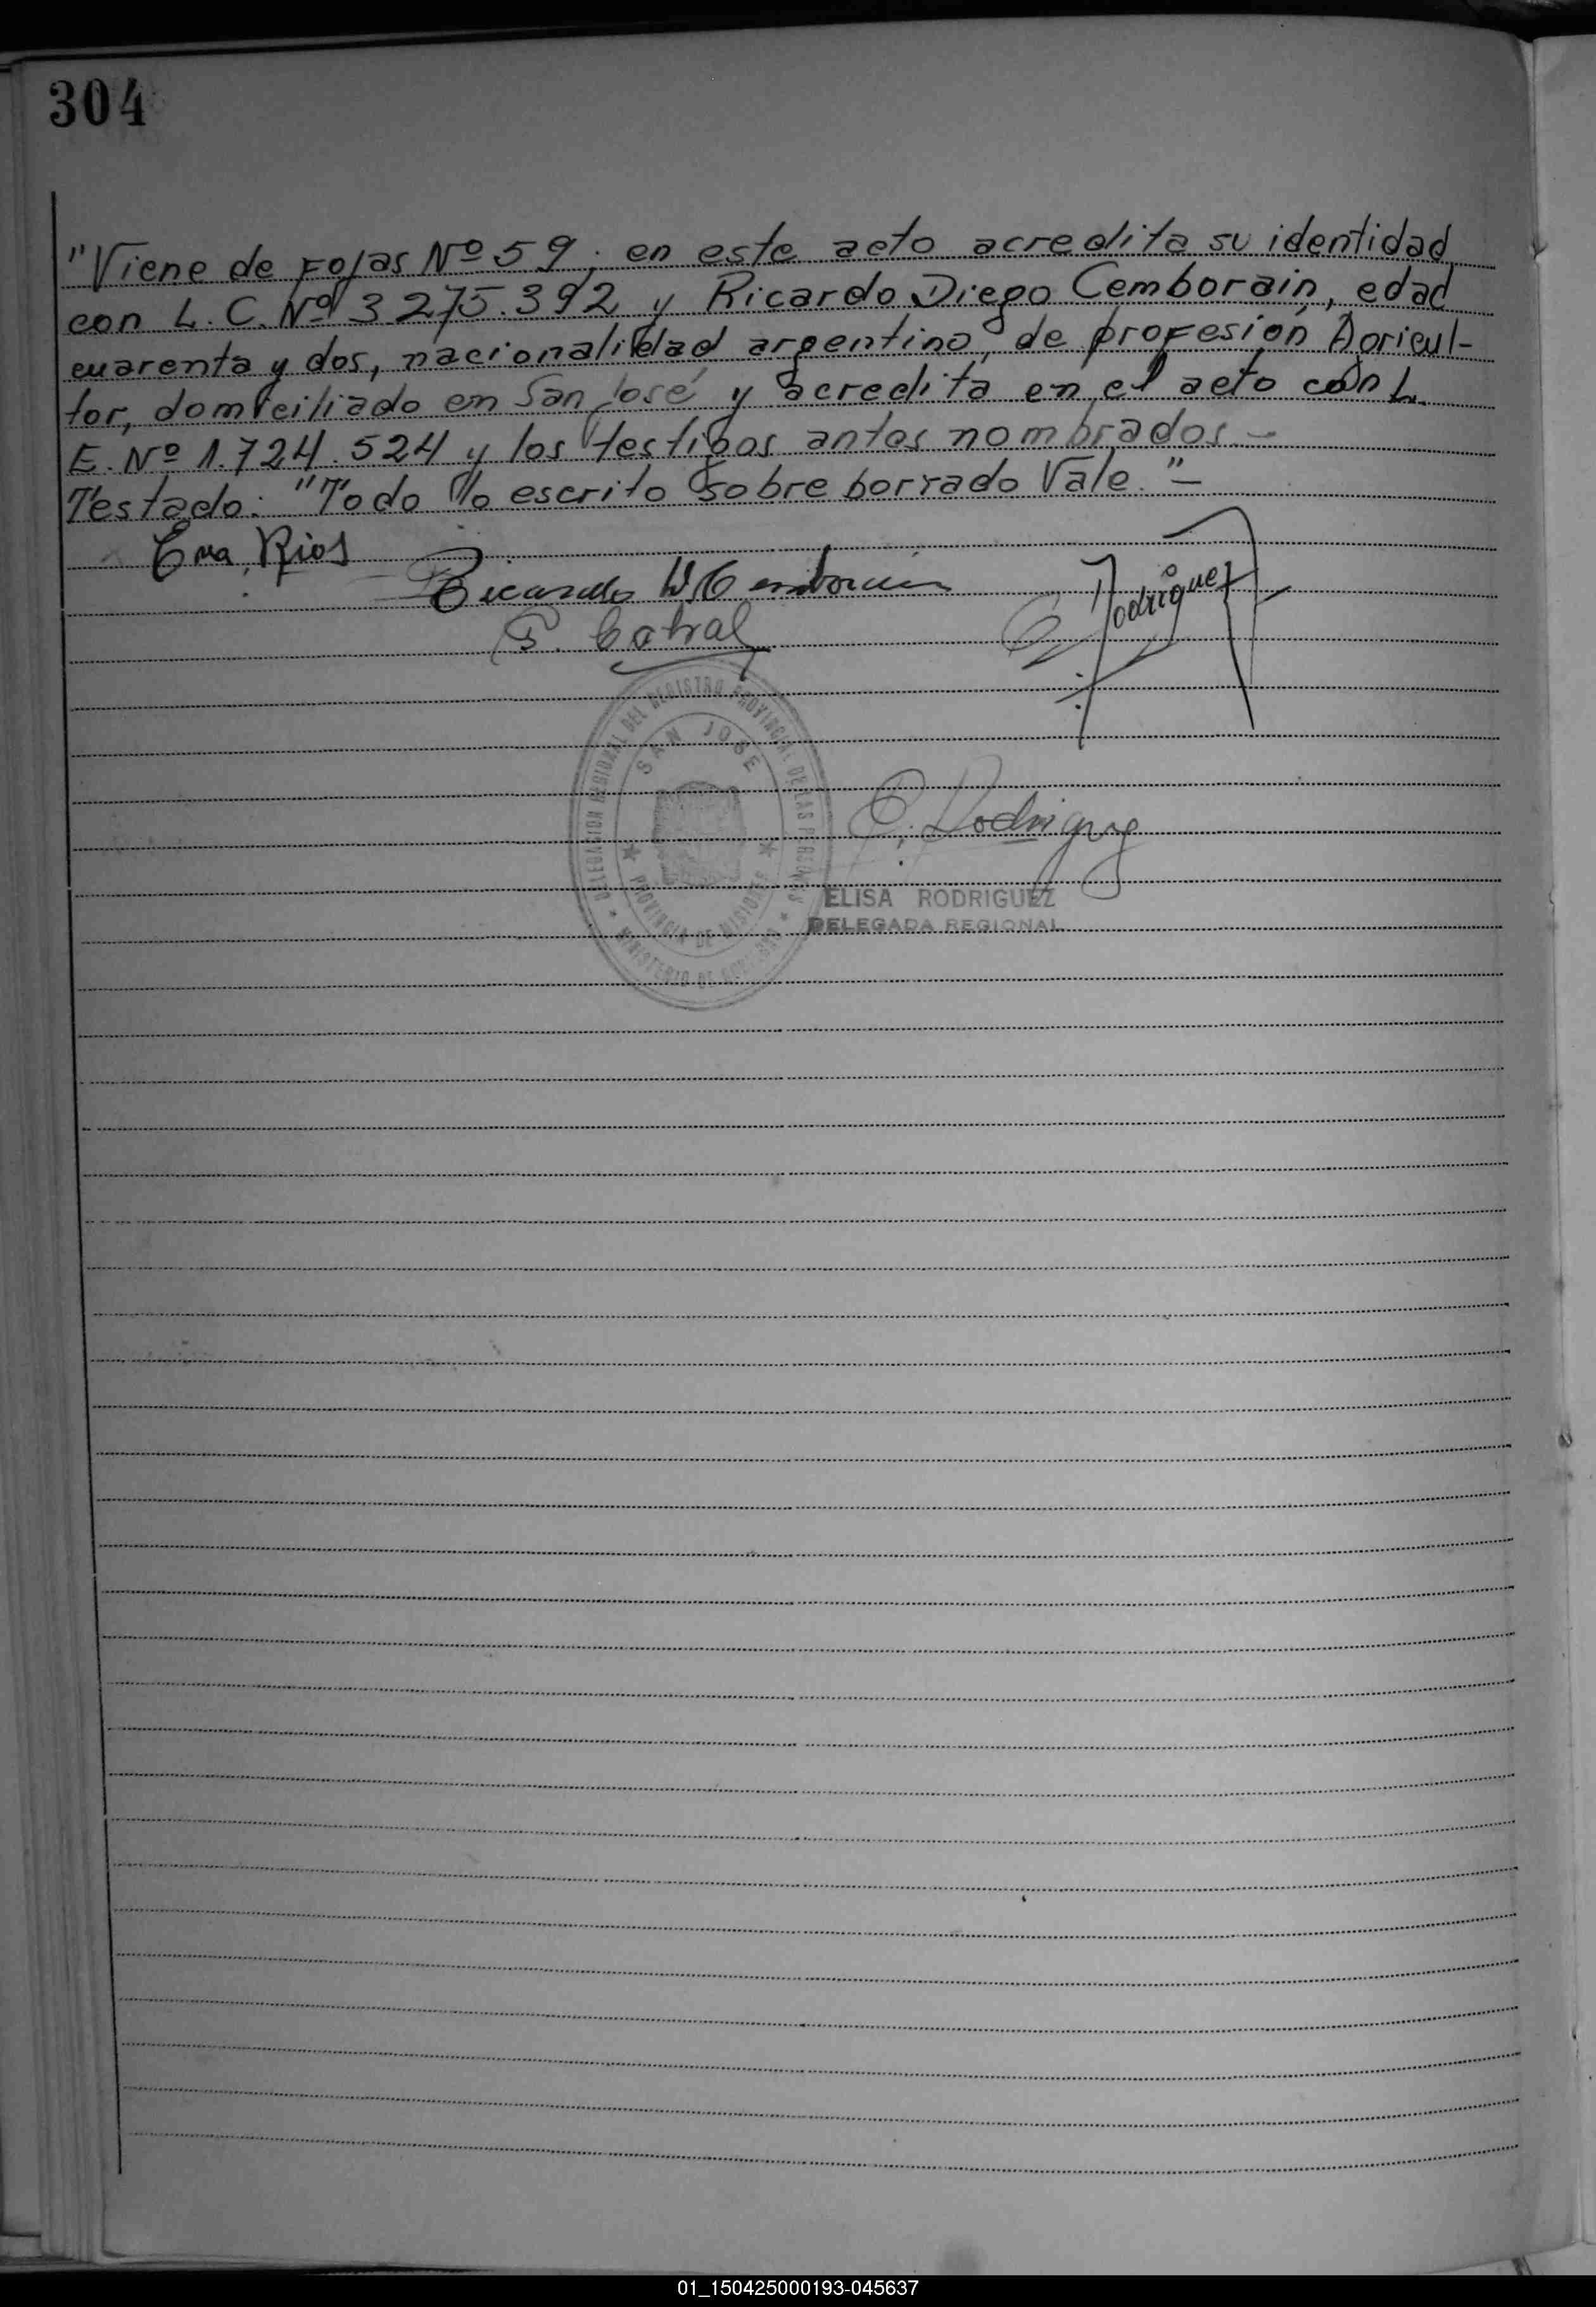 304
"Viene de Fojas Nº 59; en este acto acredita su identidad
con L. C. Nº 3.275.392 y Ricardo Diego Cemborain, edad
cuarenta y dos, nacionalidad argentino, de profesión Agricul-
tor, domiciliado en San José, y acredita en el acto con L.
E. Nº 1.724.524 y los testigos antes nombrados.-
Testado: "Todo lo escrito sobre borrado Vale."-
Eva Rios
Ricardo D Cemborain
Rodriguez
P. Cabral
DELEGACION REGIONAL DEL REGISTRO PROVINCIAL DE LAS PERSONAS
SAN JOSE
PROVINCIA DE MISIONES
MINISTERIO DE GOBIERNO
E. Rodriguez
ELISA RODRIGUEZ
DELEGADA REGIONAL
01_150425000193-045637